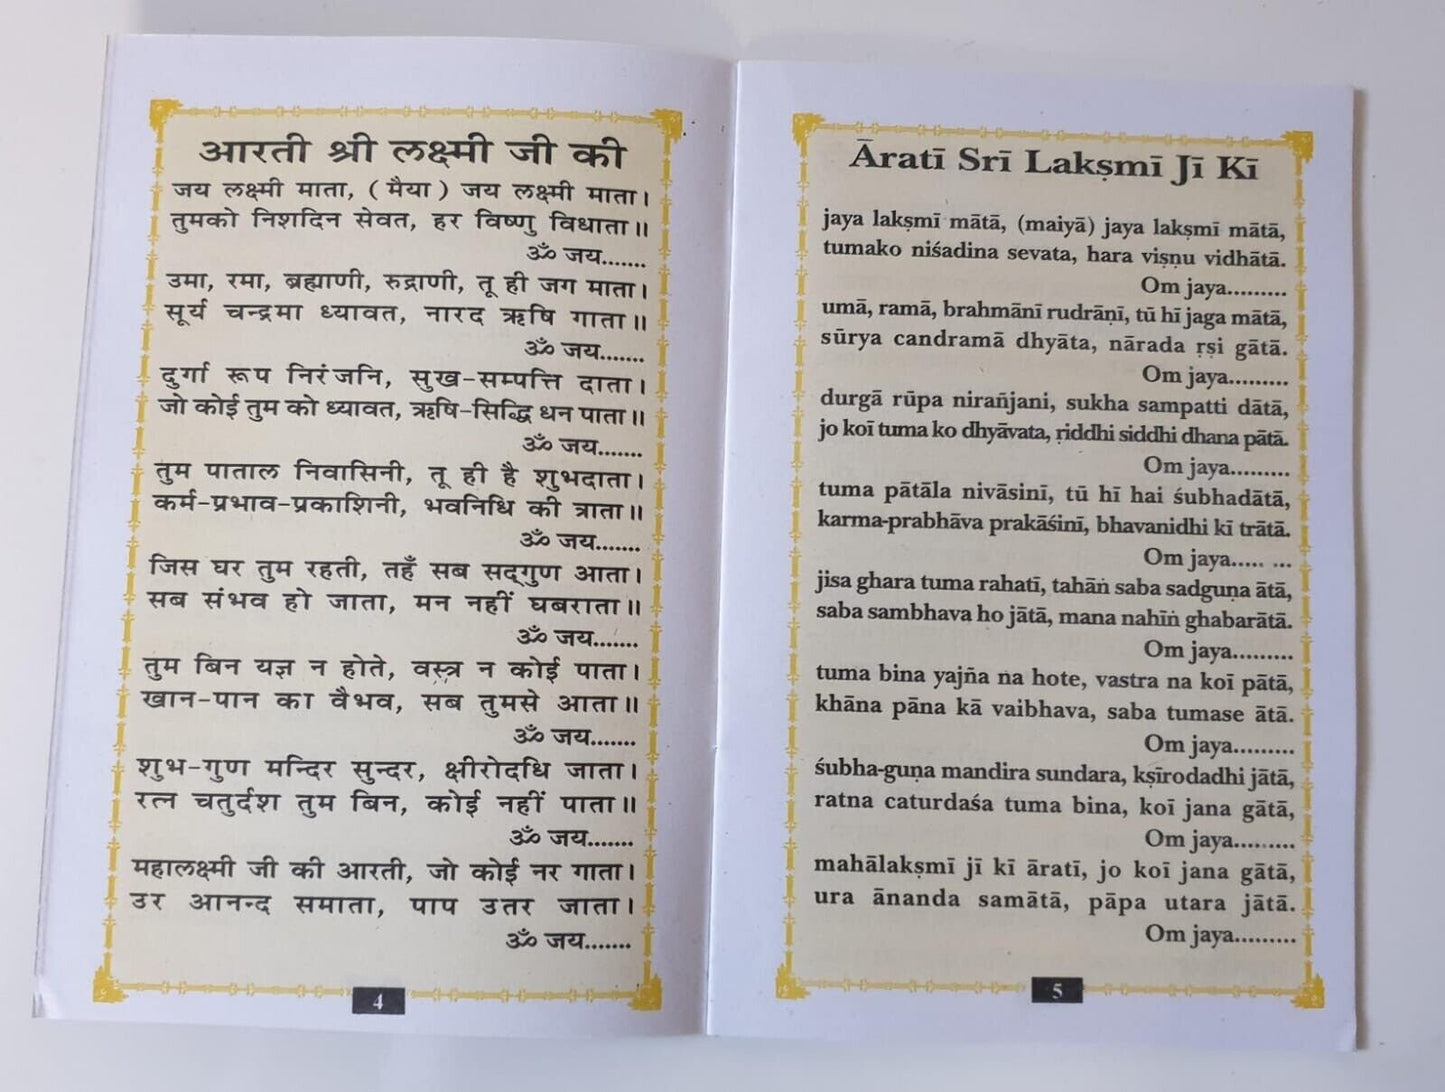 आरती श्री लक्ष्मी जी की
जय लक्ष्मी माता, ( मैया ) जय लक्ष्मी माता।
तुमको निशदिन सेवत, हर विष्णु विधाता॥
ॐ जय.......
उमा, रमा, ब्रह्माणी, रुद्राणी, तू ही जग माता।
सूर्य चन्द्रमा ध्यावत, नारद ऋषि गाता॥
ॐ जय.......
दुर्गा रूप निरंजनि, सुख-सम्पत्ति दाता।
जो कोई तुम को ध्यावत, ऋषि-सिद्धि धन पाता॥
ॐ जय.......
तुम पाताल निवासिनी, तू ही है शुभदाता।
कर्म-प्रभाव-प्रकाशिनी, भवनिधि की त्राता॥
ॐ जय.......
जिस घर तुम रहती, तहँ सब सद्‌गुण आता।
सब संभव हो जाता, मन नहीं घबराता॥
ॐ जय.......
तुम बिन यज्ञ न होते, वस्त्र न कोई पाता।
खान-पान का वैभव, सब तुमसे आता॥
ॐ जय.......
शुभ-गुण मन्दिर सुन्दर, क्षीरोदधि जाता।
रत्न चतुर्दश तुम बिन, कोई नहीं पाता॥
ॐ जय.......
महालक्ष्मी जी की आरती, जो कोई नर गाता।
उर आनन्द समाता, पाप उतर जाता।
ॐ जय.......
4
Āratī Srī Lakṣmī Jī Kī
jaya lakṣmī mātā, (maiyā) jaya lakṣmī mātā,
tumako niśadina sevata, hara viṣṇu vidhātā.
Om jaya.........
umā, ramā, brahmānī rudrāṇī, tū hī jaga mātā,
sūrya candramā dhyāta, nārada ṛṣi gātā.
Om jaya.........
durgā rūpa nirañjani, sukha sampatti dātā,
jo koī tuma ko dhyāvata, ṛiddhi siddhi dhana pātā.
Om jaya.........
tuma pātāla nivāsinī, tū hī hai śubhadātā,
karma-prabhāva prakāśinī, bhavanidhi kī trātā.
Om jaya..... ...
jisa ghara tuma rahatī, tahāṅ saba sadguṇa ātā,
saba sambhava ho jātā, mana nahīṅ ghabarātā.
Om jaya.........
tuma bina yajña na hote, vastra na koī pātā,
khāna pāna kā vaibhava, saba tumase ātā.
Om jaya.........
śubha-guṇa mandira sundara, kṣīrodadhi jātā,
ratna caturdaśa tuma bina, koī jana gātā,
Om jaya.........
mahālakṣmī jī kī āratī, jo koī jana gātā,
ura ānanda samātā, pāpa utara jātā.
Om jaya.........
5